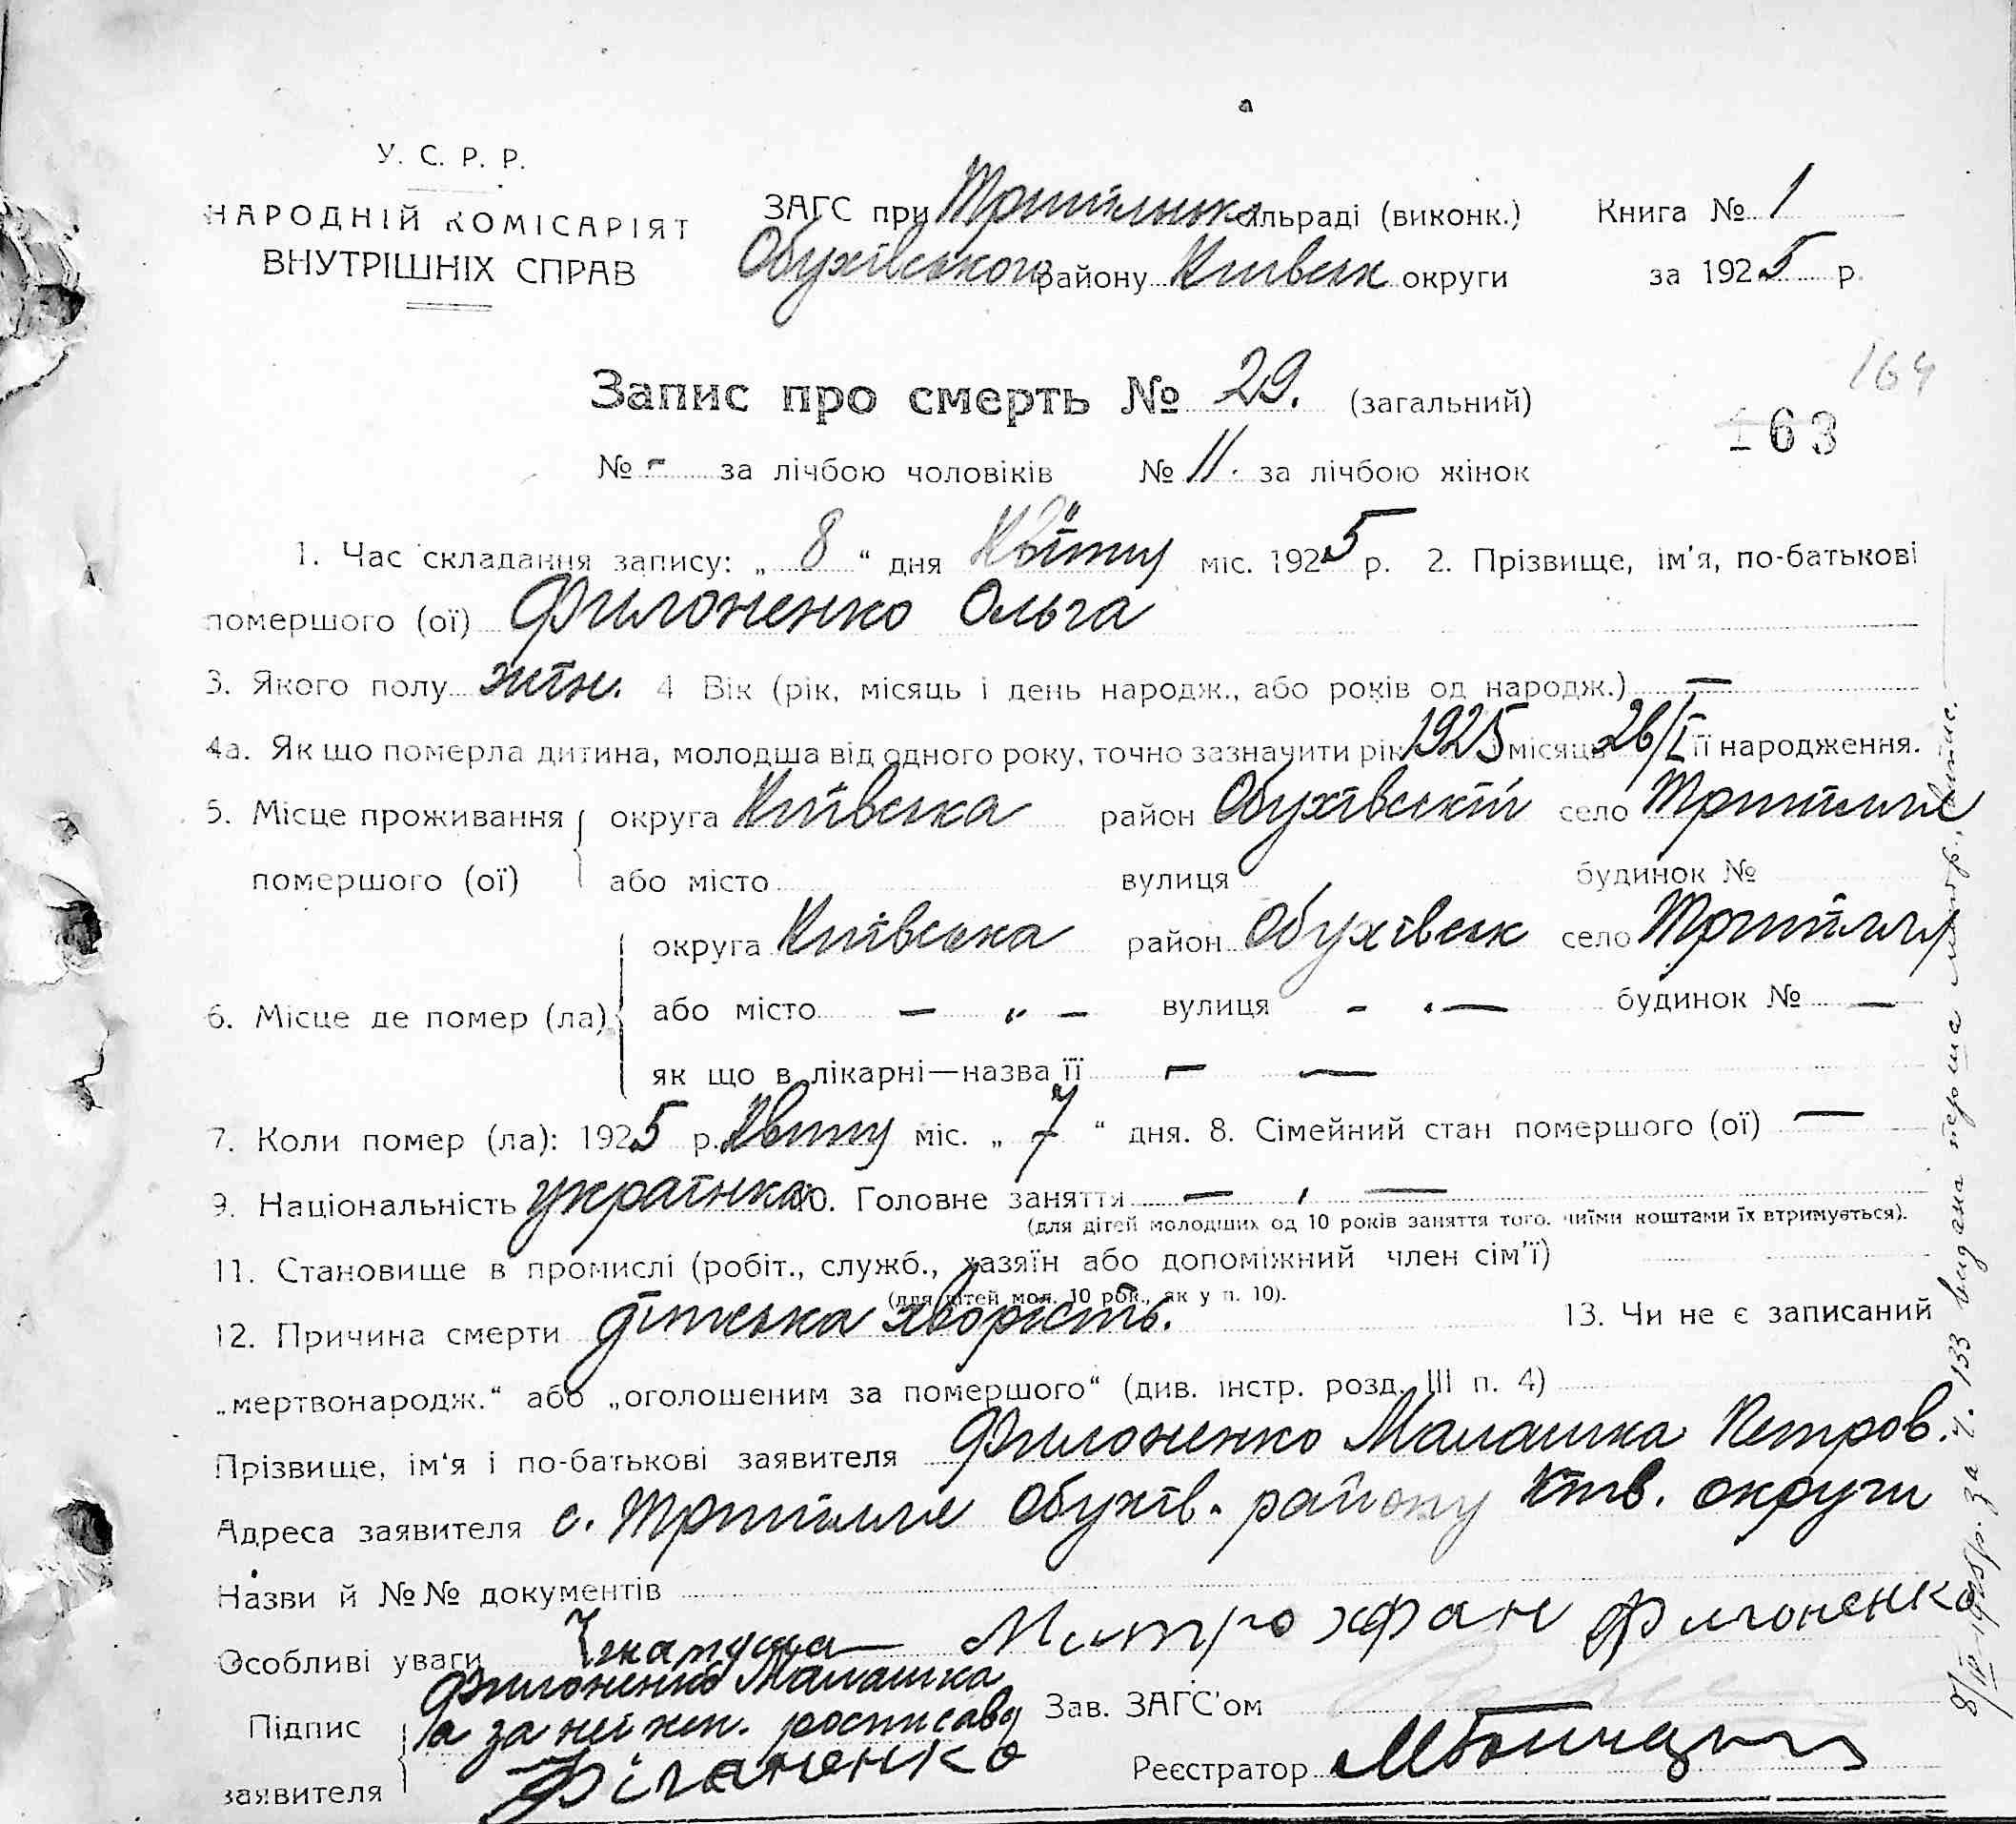 У. С. Р. Р.
НАРОДНІЙ КОМІСАРІЯТ
ВНУТРІШНІХ СПРАВ
ЗАГС при Трипільськ сільраді (виконк.)
Обухівського району Київськ округи
Книга № 1
за 1925 р.
164
163
Запис про смерть № 29. (загальний)
№ - за лічбою чоловіків № 11. за лічбою жінок
1. Час складання запису: „ 8 “ дня Квітну міс. 1925 р. 2. Прізвище, ім'я, по-батькові
помершого (ої) Филоненко Ольга
3. Якого полу жін. 4 Вік (рік, місяць і день народж., або років од народж.) —
4а. Як що померла дитина, молодша від одного року, точно зазначити рік 1925 і місяць 26/I її народження.
5. Місце проживання округа Київська район Обухівській село Трипілля
помершого (ої) або місто вулиця будинок №
округа Київська район Обухівськ село Трипілля
6. Місце де помер (ла) або місто — „ — вулиця - „ — будинок № —
як що в лікарні—назва її — —
7. Коли помер (ла): 1925 р. Квітну міс. „ 7 “ дня. 8. Сімейний стан помершого (ої) —
9. Національність українка 10. Головне заняття — , —
(для дітей молодших од 10 років заняття того, чиїми коштами їх втримується).
11. Становище в промислі (робіт., служб., хазяїн або допоміжний член сім'ї)
(для дітей мол. 10 рок., як у п. 10).
12. Причина смерти дітська хворість. 13. Чи не є записаний
„мертвонародж.“ або „оголошеним за помершого“ (див. інстр. розд. III п. 4)
Прізвище, ім'я і по-батькові заявителя Филоненко Малашка Петров.
Адреса заявителя с. Трипілля Обухів. району Київ. округи
Назви й №№ документів
Особливі уваги Митрохфан Филоненко
Филоненко Малашка
Підпис а за неї неп. росписавсь
заявителя Філоненко
Зав. ЗАГС'ом
Реєстратор
8/IV-1925р. за ч. 133 видана перша виписка